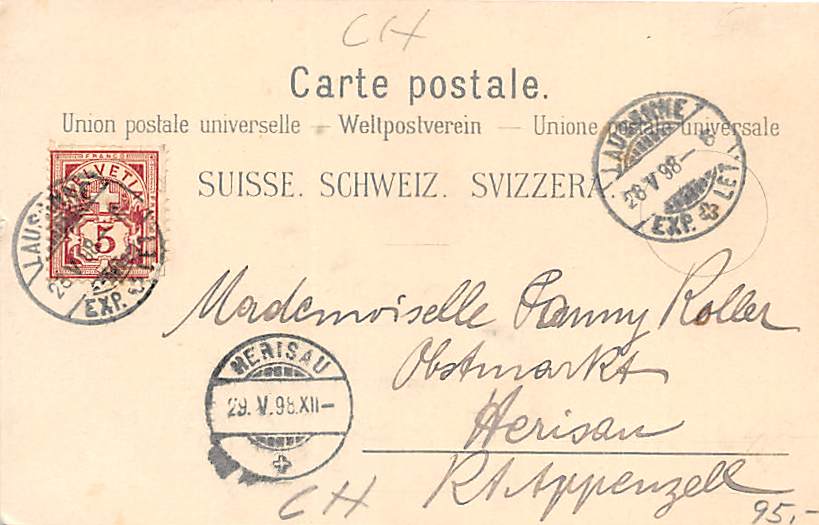 CH
Carte postale.
Union postale universelle — Weltpostverein — Unione postale universale
SUISSE. SCHWEIZ. SVIZZERA.
LAUSANNE 1
28 V 98 – 6
EXP. LET.
FRANCO
HELVETIA
5
LAUSANNE
28 V 98
EXP. LET.
Mademoiselle Fanny Koller
Obstmarkt
Herisau
Kt. Appenzell
HERISAU
29. V. 98. XII –
CH
95,-